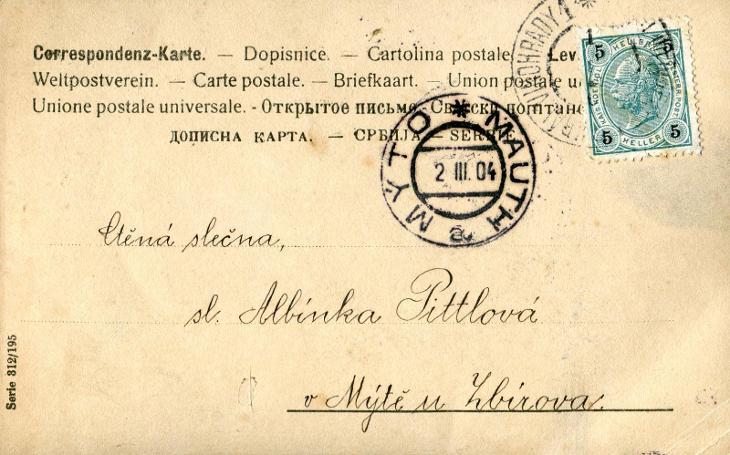 Correspondenz-Karte. — Dopisnice. — Cartolina postale. Lev
Weltpostverein. — Carte postale. — Briefkaart. — Union postale
Unione postale universelle. - Открытое письмо -
дописна карта. — Србија — SERBIE
VINOHRADY 1
5 HELLER 5
5 HELLER 5
MÝTO * MAUTH a
2 III. 04
Ctěná slečna,
sl. Albínka Pittlová
v Mýtě u Zbirova.
Serie 312/195